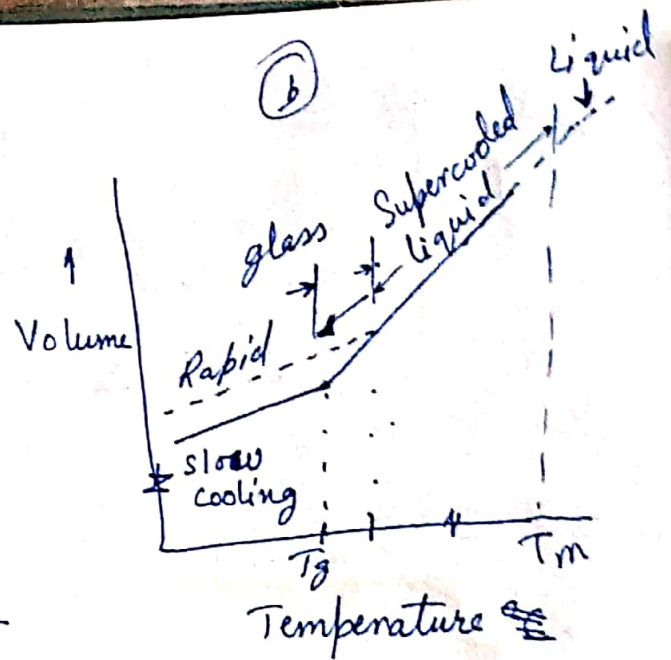 b
Liquid
Supercooled
liquid
glass
Volume
Rapid
slow
cooling
Tg
Tm
Temperature